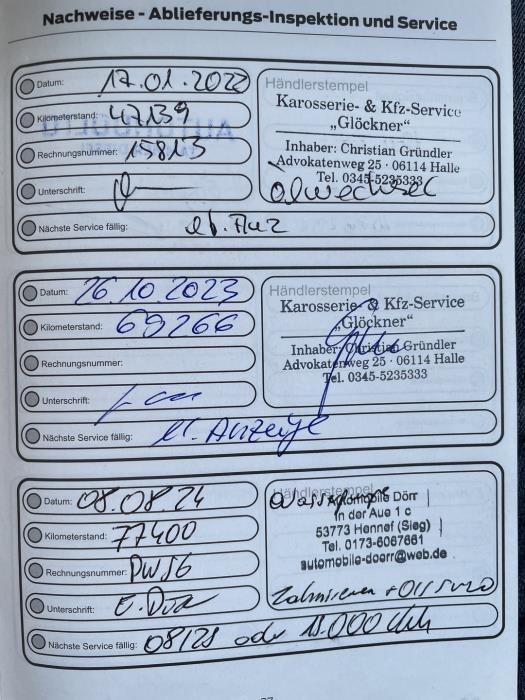 Nachweise - Ablieferungs-Inspektion und Service
Datum: 17.01.2022
Kilometerstand: 47139
Rechnungsnummer: 15813
Unterschrift:
Nächste Service fällig: lt. Anz
Händlerstempel
Karosserie- & Kfz-Service
„Glöckner“
Inhaber: Christian Gründler
Advokatenweg 25 · 06114 Halle
Tel. 0345-5235333
Ölwechsel
Datum: 26 10 2023
Kilometerstand: 69266
Rechnungsnummer:
Unterschrift:
Nächste Service fällig: lt. Anzeige
Händlerstempel
Karosserie- & Kfz-Service
„Glöckner“
Inhaber: Christian Gründler
Advokatenweg 25 · 06114 Halle
Tel. 0345-5235333
Datum: 08.08.24
Kilometerstand: 77400
Rechnungsnummer:
Unterschrift:
Nächste Service fällig: 08/25 oder
Händlerstempel
Automobile Dörr
In der Aue 1 c
53773 Hennef (Sieg)
Tel. 0173-6067661
automobile-doerr@web.de
Zahnriemen +